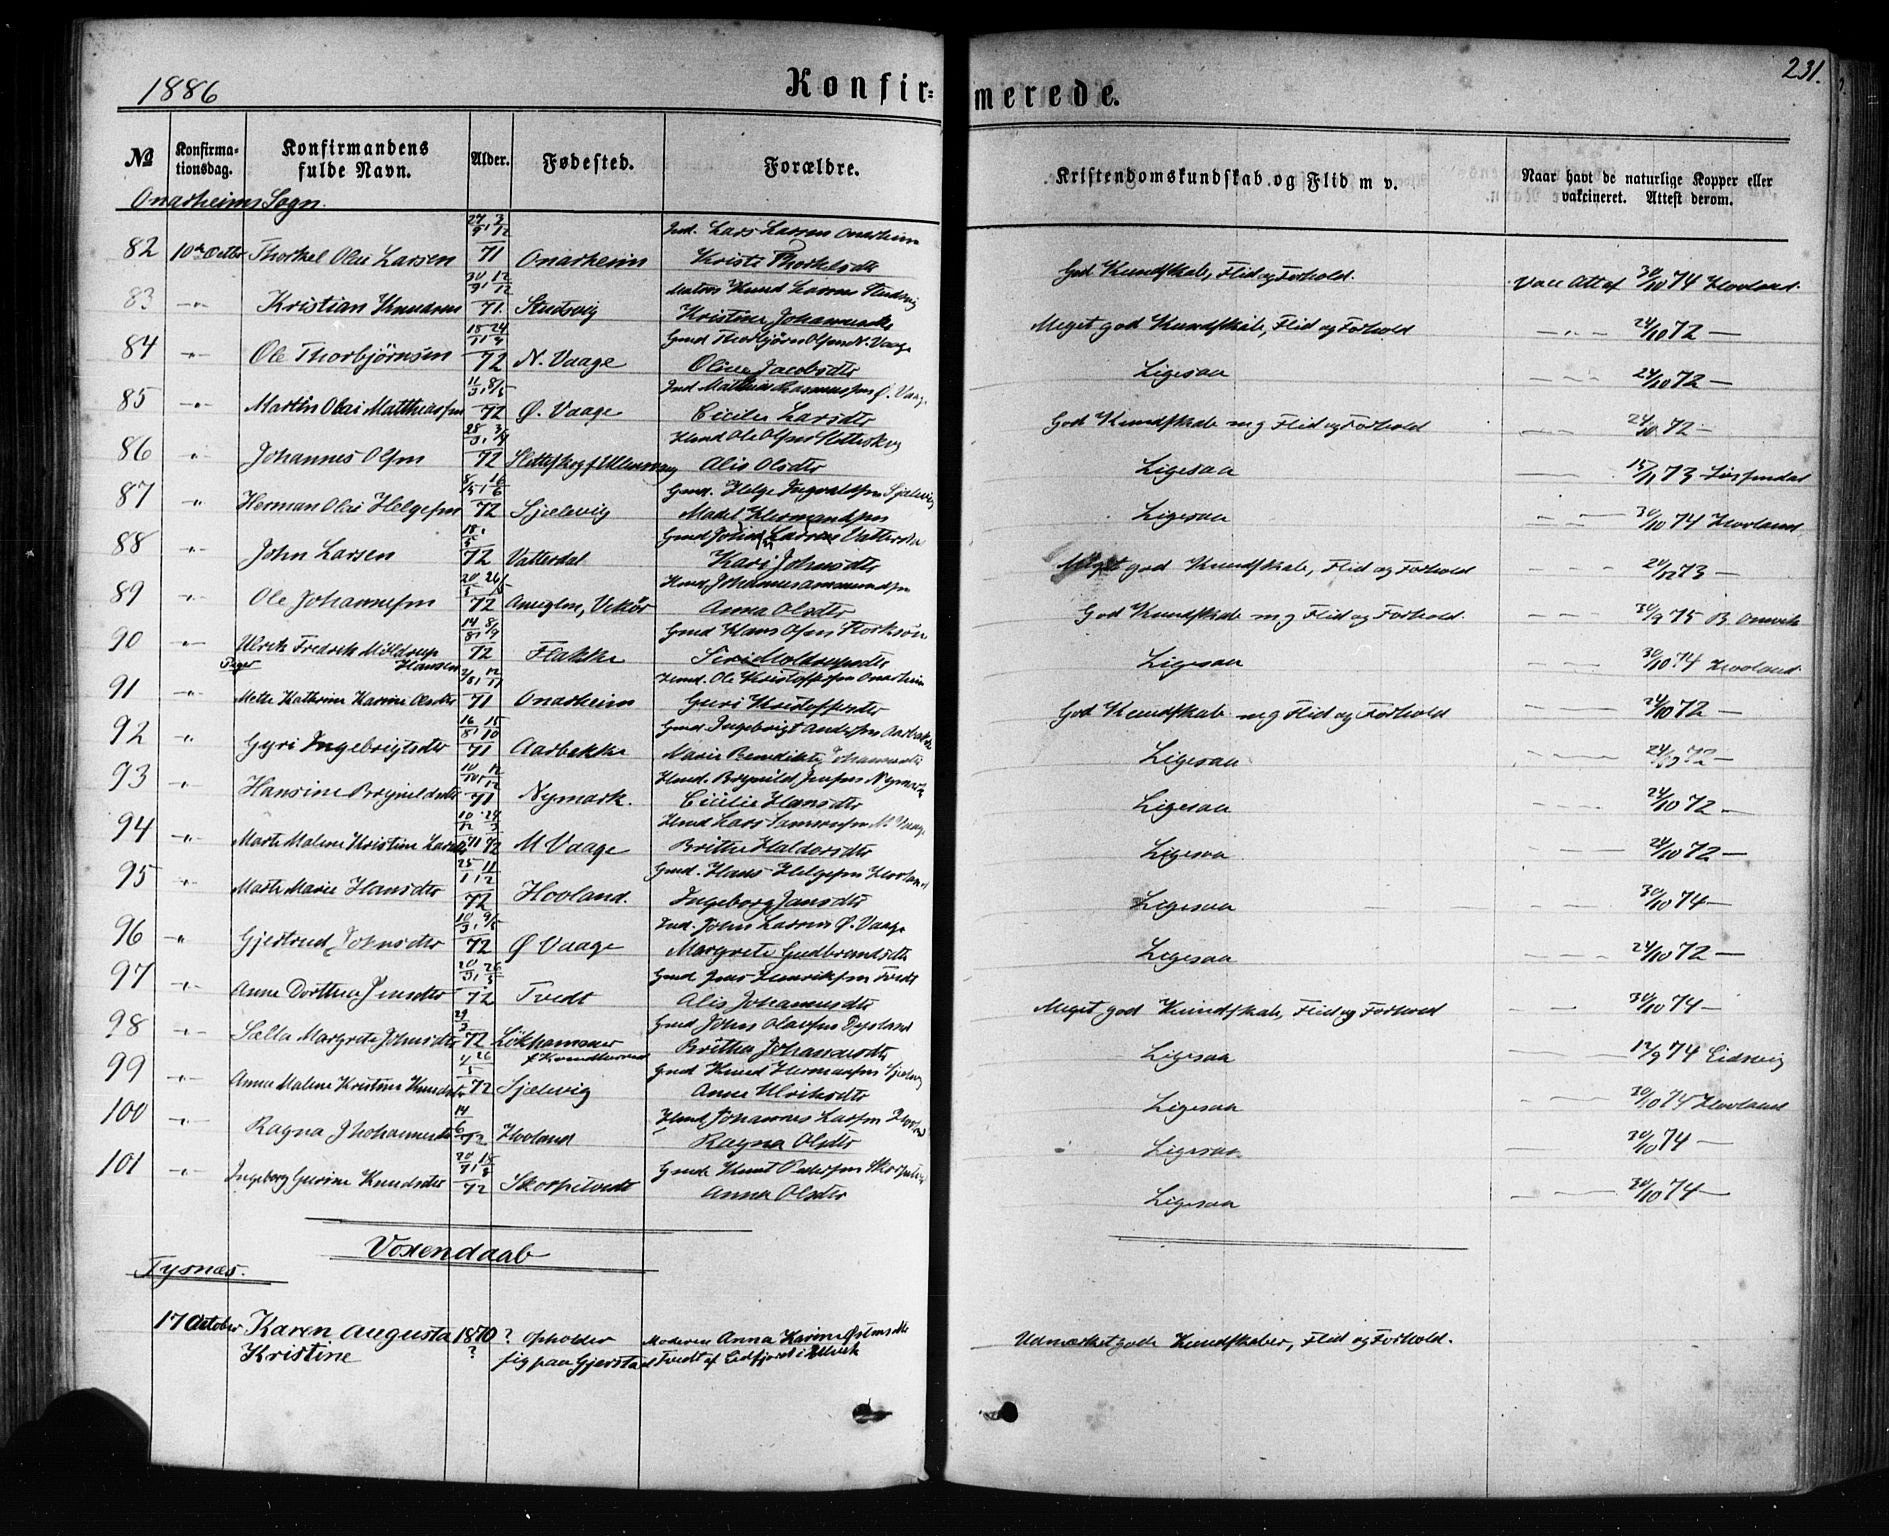 1886 Konfir- merede. 231.
No Konfirmationsdag. Konfirmandens fulde Navn. Alder. Fødested. Forældre. Kristendomskundskab og Flid m v. Naar havt de naturlige Kopper eller vakcineret. Attest derom.
Onarheims Sogn.
82 10de Octbr Thorkel Olai Larsen 71 Onarheim Lars Larsen Onarheim
Kristi Thorkelsdtr God Kundskab, Flid og Forhold. Vacc Att af 30/10 74 Hovland.
83 -"- Kristian Knudsen 71 Knud Larsen
Kristine Meget god Kundskab, Flid og Forhold -"- 24/10 72 —
84 -"- Ole Thorbjørnsen 72 N. Vaage Gmd Thorbjørn Olsen N. Vaage
Oline Jacobsdtr Ligesaa 24/10 72 —
85 -"- Martin Olai Matthiassen 72 Ø. Vaage Ind Mathias Rasmussen Ø. Vaage
Cicilie Larsdtr God Kundskab mg Flid og Forhold 24/10 72 —
86 " Johannes Olsen 72 Ole Olsen
Alis Olsdtr Ligesaa 73
87 " Herman Olai Helgesen 72 Sjælevig Gmd. Helge Ingvaldsen Sjælevig
Ligesaa 30/10 74 Hovland
88 " John Larsen 72 Vatterdal Gmd
Kari Johnsdtr Meget god Kundskab, Flid og Forhold 73 —
89 " Ole Johannessen 72 Johannes
Anna Olsdtr God Kundskab mg Flid og Forhold. 75
90 -"- Ulrik Fredrik Mildrup
Hansen 72 Flakke Gmd Hans Olsen
Ligesaa 30/10 74 Hovland
Piger
91 -"- Mette Kathrine Karine Olsdtr 71 Onarheim Ole Kristoffersen Onarheim
Guri Kristoffersdtr God Kundskab mg Flid og Forhold 24/10 72 —
92 " Gyri Ingebrigtsdtr 71 Aarbakke Gmd Ingebrigt Andersen Aarbakke
Marie Benedikte Johannesdtr Ligesaa 24/10 72 —
93 " Hansine Brynildsdtr 71 Nymark. Brynild Jensen Nymark
Cicilie Hansdtr Ligesaa 24/10 72 —
94 " Marta Malene Kristine Larsdtr 71 72 M Vaage Lars M Vaage
Britha Haldorsdtr Ligesaa 24/10 72 —
95 " Marta Marie Hansdtr 72 Hovland. Gmd. Hans Helgesen Hovland
Ingeborg Jansdtr Ligesaa 30/10 74 —
96 " Gjertrud Johnsdtr 72 Ø Vaage Ind. John Larsen Ø. Vaage
Margrete Gudbrandsdtr Ligesaa 24/10 72 —
97 -"- Anne Dorthea Jensdtr 72 Tvedt Gmd Jens Henriksen Tvedt
Alis Johannesdtr Meget god Kundskab, Flid og Forhold 30/10 74 —
98 -"- Salla Margrete Johnsdtr 72 Løkhammer Gmd John Olavsen
Britha Johannesdtr Ligesaa 12/9 74 Eidsvig
99 -"- Anna Malene Kristine Knudsdtr 72 Sjælevig Gmd Knud Hermansen Sjælevig
Anne Ulriksdtr Ligesaa 30/10 74 Hovland
100 -"- Ragna Johannesdtr 72 Hovland Johannes Larsen Hovland
Ragna Olsdtr Ligesaa 30/10 74 —
101 -"- Ingeborg Gurine Knudsdtr 72 Skorpetvedt Gmd. Knut Pedersen
Anna Olsdtr Ligesaa 30/10 74 —
Voxendaab
Tysnæs.
17 October Karen Augusta 1870 ? opholder Moderen Anna Karine
Kristine ? sig paa Gjerstad Tvedt af Eidfjord i Ulvik Udmærket gode Kundskaber, Flid og Forhold.